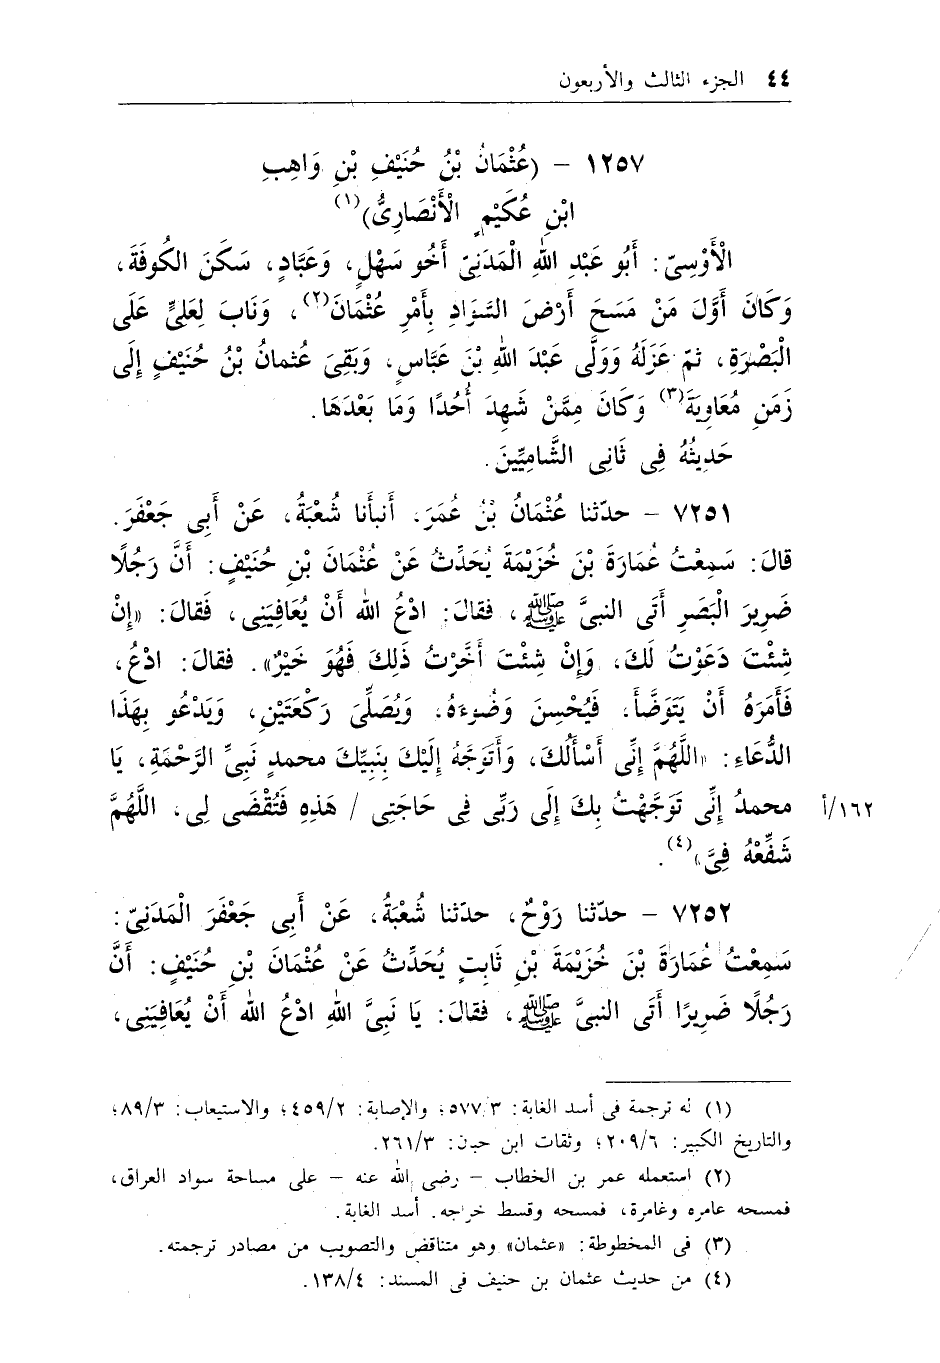 ٤٤ الجزء الثالث والأربعون
١٢٥٧ - (عُثْمَانُ بْنُ حُنَيْفِ بْنِ وَاهِبِ
ابْنِ عُكَيْمٍ الْأَنْصَارِىُّ)(١)
الْأَوْسِىّ: أَبُو عَبْدِ اللهِ الْمَدَنِىّ أَخُو سَهْلٍ، وَعَبَّادٍ، سَكَنَ الكُوفَةَ،
وَكَانَ أَوَّلَ مَنْ مَسَحَ أَرْضَ السَّوَادِ بِأَمْرِ عُثْمَانَ(٢)، وَنَابَ لِعَلِىٍّ عَلَى
الْبَصْرَةِ، ثمّ عَزَلَهُ وَوَلَّى عَبْدَ اللهِ بْنَ عَبَّاسٍ، وَبَقِىَ عُثمانُ بْنُ حُنَيْفٍ إِلَى
زَمَنِ مُعَاوِيَةَ(٣) وَكَانَ مِمَّنْ شَهِدَ أُحُدًا وَمَا بَعْدَهَا.
حَدِيثُهُ فِى ثَانِى الشَّامِيِّينَ.
٧٢٥١ - حدّثنا عُثْمَانُ بْنُ عُمَرَ، أنبأنا شُعْبَةُ، عَنْ أَبِى جَعْفَرَ.
قالَ: سَمِعْتُ عُمَارَةَ بْنَ خُزَيْمَةَ يُحَدِّثُ عَنْ عُثْمَانَ بْنِ حُنَيْفٍ: أَنَّ رَجُلًا
ضَرِيرَ الْبَصَرِ أَتَى النبىَّ ﷺ، فقالَ: ادْعُ اللهَ أَنْ يُعَافِيَنِى، فَقالَ: «إِنْ
شِئْتَ دَعَوْتُ لَكَ، وَإِنْ شِئْتَ أَخَّرْتُ ذَلِكَ فَهُوَ خَيْرٌ». فقالَ: ادْعُ،
فَأَمَرَهُ أَنْ يَتَوَضَّأَ، فَيُحْسِنَ وَضُوءَهُ، وَيُصَلِّىَ رَكْعَتَيْنِ، وَيَدْعُو بِهَذَا
الدُّعَاءِ: «اللَّهُمَّ إِنِّى أَسْأَلُكَ، وَأَتَوَجَّهُ إِلَيْكَ بِنَبِيِّكَ محمدٍ نَبِىِّ الرَّحْمَةِ، يَا
محمدُ إِنِّى تَوَجَّهْتُ بِكَ إِلَى رَبِّى فِى حَاجَتِى / هَذِهِ فَتُقْضَى لِى، اللَّهُمَّ ١٦٢/أ
شَفِّعْهُ فِىَّ»(٤).
٧٢٥٢ - حدّثنا رَوْحٌ، حدّثنا شُعْبَةُ، عَنْ أَبِى جَعْفَرَ الْمَدَنِىّ:
سَمِعْتُ عُمَارَةَ بْنَ خُزَيْمَةَ بْنِ ثَابِتٍ يُحَدِّثُ عَنْ عُثْمَانَ بْنِ حُنَيْفٍ: أَنَّ
رَجُلًا ضَرِيرًا أَتَى النبىَّ ﷺ، فقالَ: يَا نَبِىَّ اللهِ ادْعُ اللهَ أَنْ يُعَافِيَنِى،
(١) له ترجمة فى أسد الغابة: ٥٧٧/٣؛ والإصابة: ٤٥٩/٢؛ والاستيعاب: ٨٩/٣؛
والتاريخ الكبير: ٢٠٩/٦؛ وثقات ابن حبان: ٢٦١/٣.
(٢) استعمله عمر بن الخطاب - رضى الله عنه - على مساحة سواد العراق،
فمسحه عامره وغامرة، فمسحه وقسط خراجه. أسد الغابة.
(٣) فى المخطوطة: «عثمان» وهو متناقض والتصويب من مصادر ترجمته.
(٤) من حديث عثمان بن حنيف فى المسند: ١٣٨/٤.